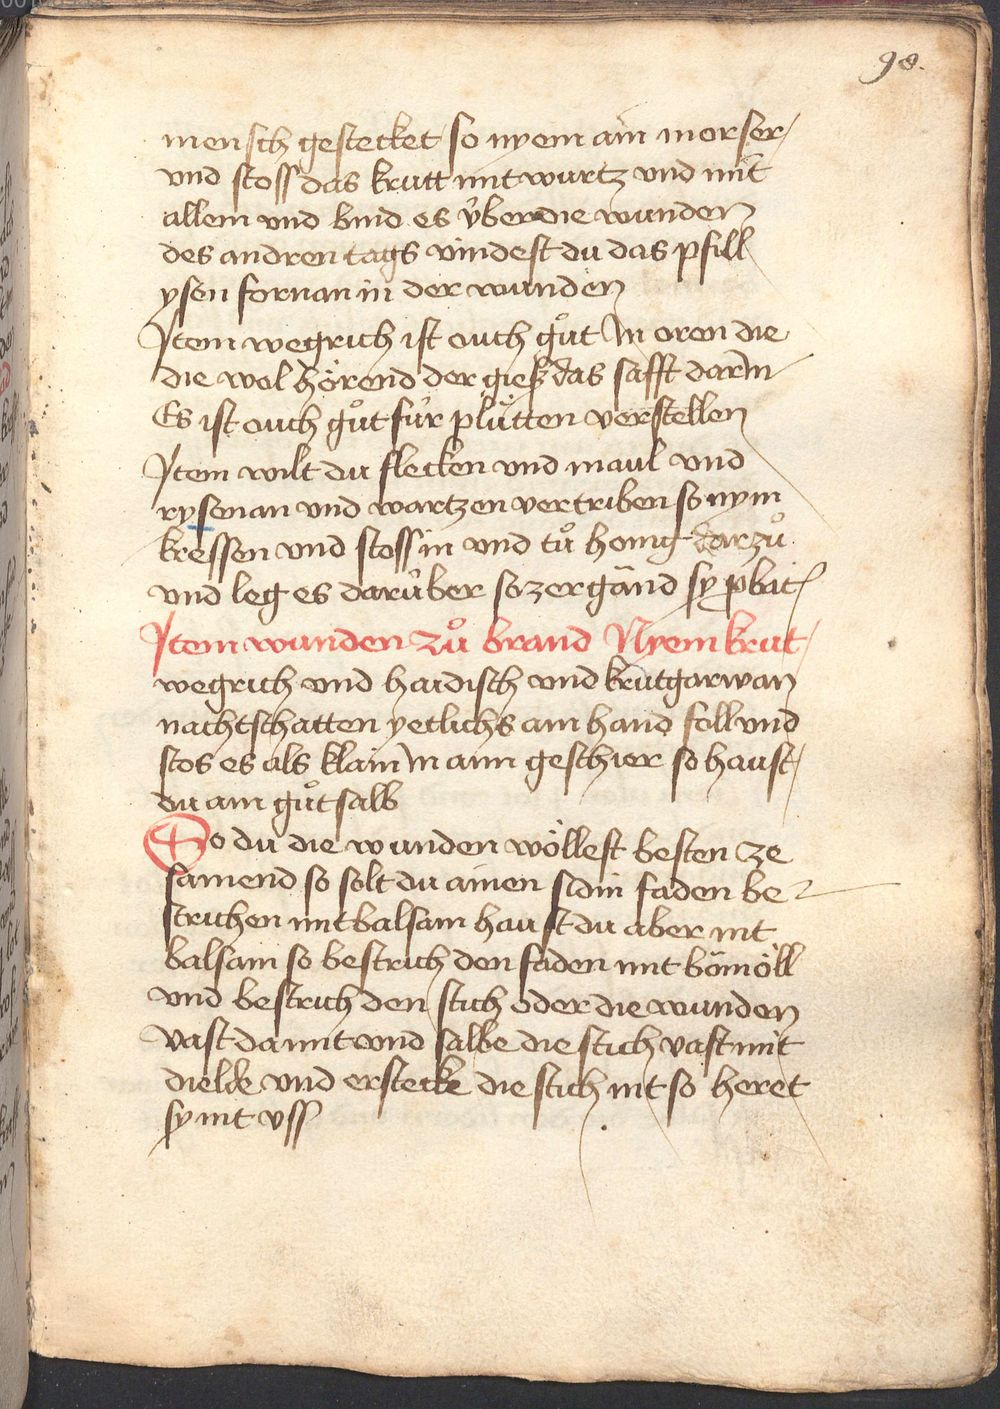 98.
mensch gestecket so nyem ain morser
vnd stoss das krutt mit wurtz vnd mit
allem vnd bind es v̊ber die wunden
des andren tags vindest du das pfill
ysen fornan in der wunden
Item wegrich ist ouch gůt In oren die
die wol hörend der gieß das safft darin
Es ist ouch gůt fúr plůtten verstellen
Item wilt du flecken vnd maul vnd
rysenan vnd wartzen vertriben so nym
kressen vnd stoss in vnd tů honig darzů
vnd leg es darúber so zergånd sy
Item wunden zů brand Nyem krut
wegrich vnd haidisch vnd krutgarwan
nachtschatten yetlichs ain hand foll vnd
stos es als klain In ainn geschier so haust
du ain gůt salb
So du die wunden wöllest hesten ze
samend so solt du ainen sidin faden be
strichen mit balsam haust du aber nit
balsam so bestrich den faden mit bömöll
vnd bestrich den stich oder die wunden
vast da mit vnd salbe die stich vast mit
vnd erstecke die stich nit so heret
sy nit vss